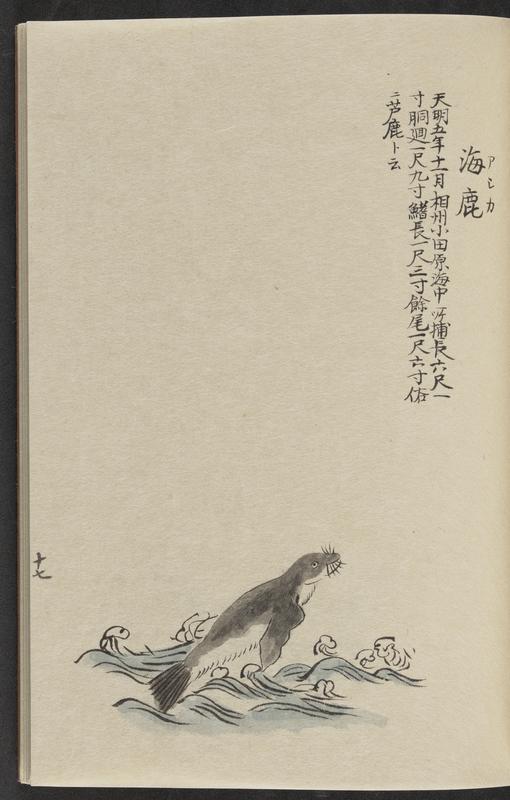 海鹿
アシカ
天明五年十一月相州小田原海中所捕長六尺一
寸胴廻一尺九寸鰭長一尺三寸餘尾一尺六寸俗
ニ芦鹿ト云
十七